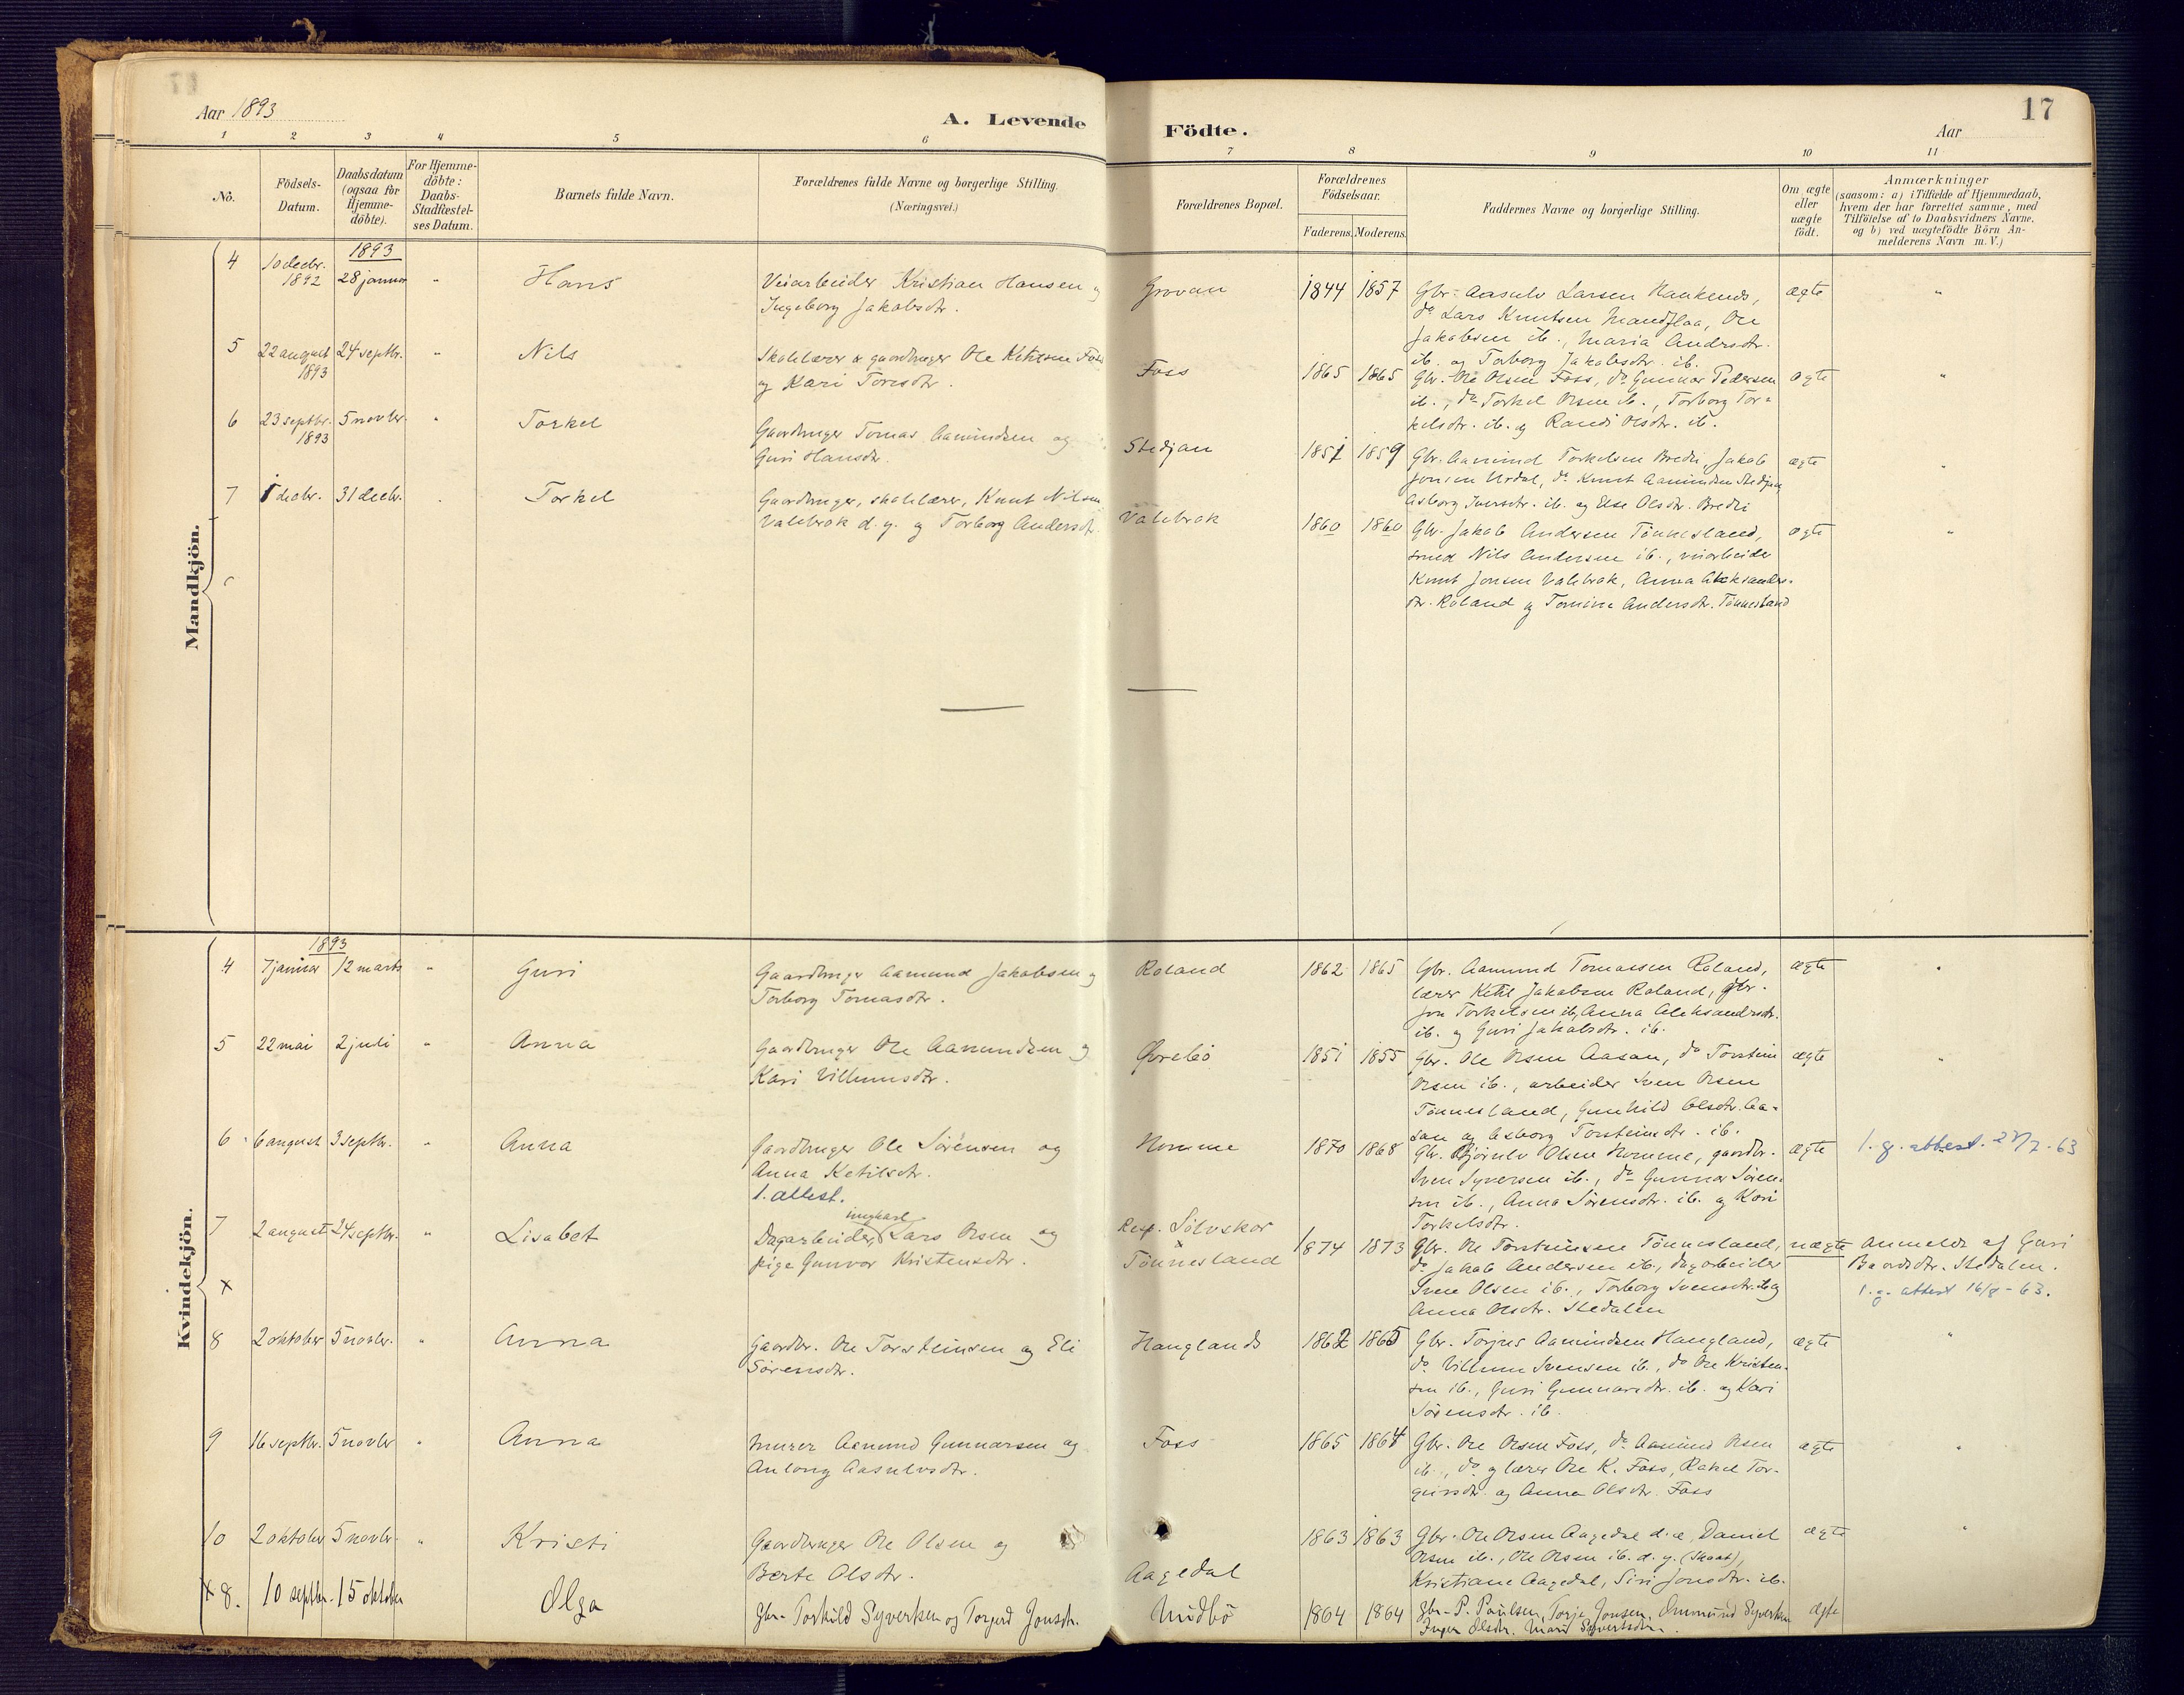 17
Aar 1893
A. Levende Födte.
Aar
1 2 3 4 5 6 7 8 9 10 11
No.
Födsels-Datum.
Daabsdatum (ogsaa for Hjemmedöbte).
For Hjemmedöbte: Daabs-Stadfæstelses Datum.
Barnets fulde Navn.
Forældrenes fulde Navne og borgerlige Stilling. (Næringsvei.)
Forældrenes Bopæl.
Forældrenes Födselsaar.
Faderens. Moderens.
Faddernes Navne og borgerlige Stilling.
Om ægte eller uægte födt.
Anmærkninger
(saasom: a) i Tilfælde af Hjemmedaab,
hvem der har forrettet samme, med
Tilföielse af to Daabsvidners Navne,
og b) ved uægtefödte Börn Anmelderens Navn m.V.)
Mandkjön.
1893
4 10 decbr. 1892 28 januar " Hans
Veiarbeider Kristian Hansen og
Ingeborg Jakobsdtr.
Grovan 1844 1857
Gbr. Aasulv Larsen Haukends,
do Lars Knutsen Mandflaa, Ole
Jakobsen ib., Maria Andersdtr.
ib. og Torborg Jakobsdtr. ib.
ægte "
5 22 august 1893 24 septbr. " Nils
Skolelærer & gaardbruger Ole Ketilsen Foss
og Kari Toresdtr.
Foss 1865 1865
Gbr. Ole Olsen Foss, do Gunnar Pedersen
ib., do Torkel Olsen ib., Torborg Tor-
kelsdtr. ib. og Randi Olsdtr. ib.
ægte "
6 23 septbr. 1893 5 novbr. " Torkel
Gaardbruger Tomas Aamundsen og
Guri Hansdtr.
Stedjan 1851 1859
Gbr. Aamund Torkelsen Bredli, Jakob
Jonsen Urdal, do Knut Aamundsen Stedjan,
Asborg Iversdtr. ib. og Else Olsdtr. Bredli
ægte "
7 1 decbr. 31 decbr. " Torkel
Gaardbruger, skolelærer, Knut Nilsen
Valebrok d.y. og Torborg Andersdtr.
Valebrok 1860 1860
Gbr. Jakob Andersen Tönnesland,
smed Nils Andersen ib., veiarbeider
Knut Jonsen Valebrok, Anna Aleksanders-
dtr. Roland og Tomine Andersdtr. Tönnesland
ægte "
Kvindekjön.
1893
4 7 januar 12 marts " Guri
Gaardbruger Aamund Jakobsen og
Torborg Tomasdtr.
Roland 1862 1865
Gbr. Aamund Tomassen Roland,
lærer Ketil Jakobsen Roland, gbr.
Jon Torkelsen ib., Anna Aleksandersdtr.
ib. og Guri Jakobsdtr. ib.
ægte "
5 22 mai 2 juli " Anna
Gaardbruger Ole Aamundsen og
Kari Villumsdtr.
Øvrebö 1851 1855
Gbr. Ole Olsen Aasan, do Torstein
Olsen ib., arbeider Sven Olsen
Tönnesland, Gunhild Olsdtr. Aa-
san og Asborg Torsteinsdtr. ib.
ægte "
6 6 august 3 septbr. " Anna
Gaardbruger Ole Sörensen og
Anna Ketilsdtr.
1. attest.
Homme 1870 1868
Gbr. Björnulv Olsen Homme, gaardbr.
Sven Syversen ib., do Gunnar Sören-
sen ib., Anna Sörensdtr. ib. og Kari
Torkelsdtr.
ægte 1. g. attest. 27/7-63
7 2 august 24 septbr. " Lisabet
Dagarbeider, ungkarl Lars Olsen og
pige Gunvor Kristensdtr.
Resp. Sölvskar
x Tönnesland 1874 1873
Gbr. Ole Torsteinsen Tönnesland,
do Jakob Andersen ib., dagarbeider
Sven Olsen ib., Torborg Svensdtr. ib. og
Anna Olsdtr. Stedalen
uægte Anmeldt af Guri
Baardsdtr. Stedalen.
1. g. attest 16/8-63.
x
8 2 oktober 5 novbr. " Anna
Gaardbr. Ole Torsteinsen og Eli
Sörensdtr.
Hauglands 1862 1865
Gbr. Torjus Aamundsen Haugland,
do Villum Svensen ib., do Ole Kristen-
sen ib., Guri Gunnarsdtr. ib. og Kari
Sörensdtr. ib.
ægte "
9 16 septbr. 5 novbr " Anna
Murer Aamund Gunnarsen og
Anlaug Aasulvsdtr.
Foss 1865 1864
Gbr. Ole Olsen Foss, do Aamund Olsen
ib., do og lærer Ole K. Foss, Rakel Tor-
geirsdtr. og Anna Olsdtr. Foss
ægte "
10 2 oktober 5 novbr. " Kristi
Gaardbruger Ole Olsen og
Berte Olsdtr.
Aagedal 1863 1863
Gbr. Ole Olsen Aagedal d.æ., Daniel
Olsen ib., Ole Olsen ib. d.y. (Skaat),
Kristiane Aagedal, Siri Jonsdtr. ib.
ægte "
x 8. 10 septbr. 15 oktober Olga
Gbr. Torkild Syversen og Torgerd Jonsdtr.
Midbö 1864 1864
Gbr. P. Paulsen, Torje Jonsen, Ommund Syversen
Inger Olsdtr. Mari Syvertsdtr.
ægte